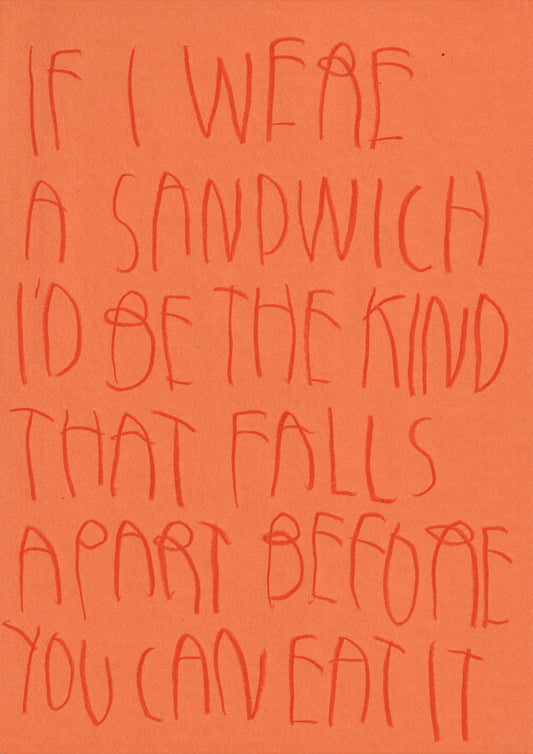 IF I WERE
A SANDWICH
I'D BE THE KIND
THAT FALLS
APART BEFORE
YOU CAN EAT IT